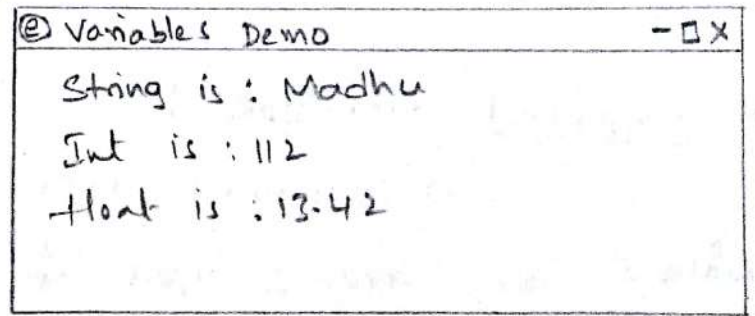 e Variables Demo - □ X
String is : Madhu
Int is : 112
float is : 13.42